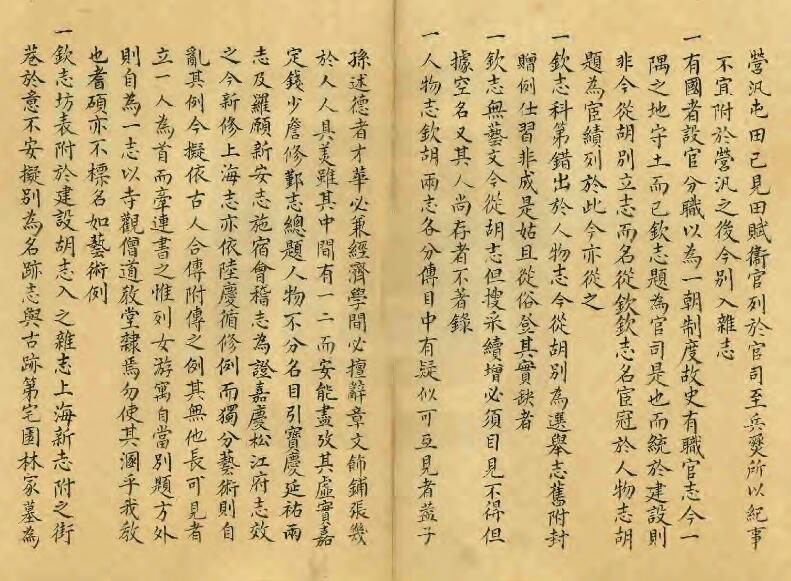 營汛屯田已見田賦衞官列於官司至兵燹所以紀事
不宜附於營汛之後今別入雜志
一有國者設官分職以為一朝制度故史有職官志今一
隅之地守土而已欽志題為官司是也而統於建設則
非今從胡別立志而名從欽欽志名宦冠於人物志胡
題為宦績列於此今亦從之
一欽志科第錯出於人物志今從胡別為選舉志舊附封
贈例仕習非成是姑且從俗登其實缺者
一欽志無藝文今從胡志但搜采續增必須目見不得但
據空名又其人尚存者不著錄
一人物志欽胡兩志各分傳目中有疑似可互見者益子
孫述德者才華必兼經濟學問必擅辭章文飾鋪張幾
於人人具美雖其中間有一二而安能盡攷其虛實嘉
定錢少詹修鄞志總題人物不分名目引寶慶延祐兩
志及羅願新安志施宿會稽志為證嘉慶松江府志效
之今新修上海志亦依陸慶循修例而獨分藝術則自
亂其例今擬依古人合傳附傳之例其無他長可見者
立一人為首而牽連書之惟列女游寓自當別題方外
則自為一志以寺觀僧道敎堂隸焉勿使其溷乎我敎
也耆碩亦不標名如藝術例
一欽志坊表附於建設胡志入之雜志上海新志附之街
巷於意不安擬別為名跡志與古跡第宅園林冢墓為